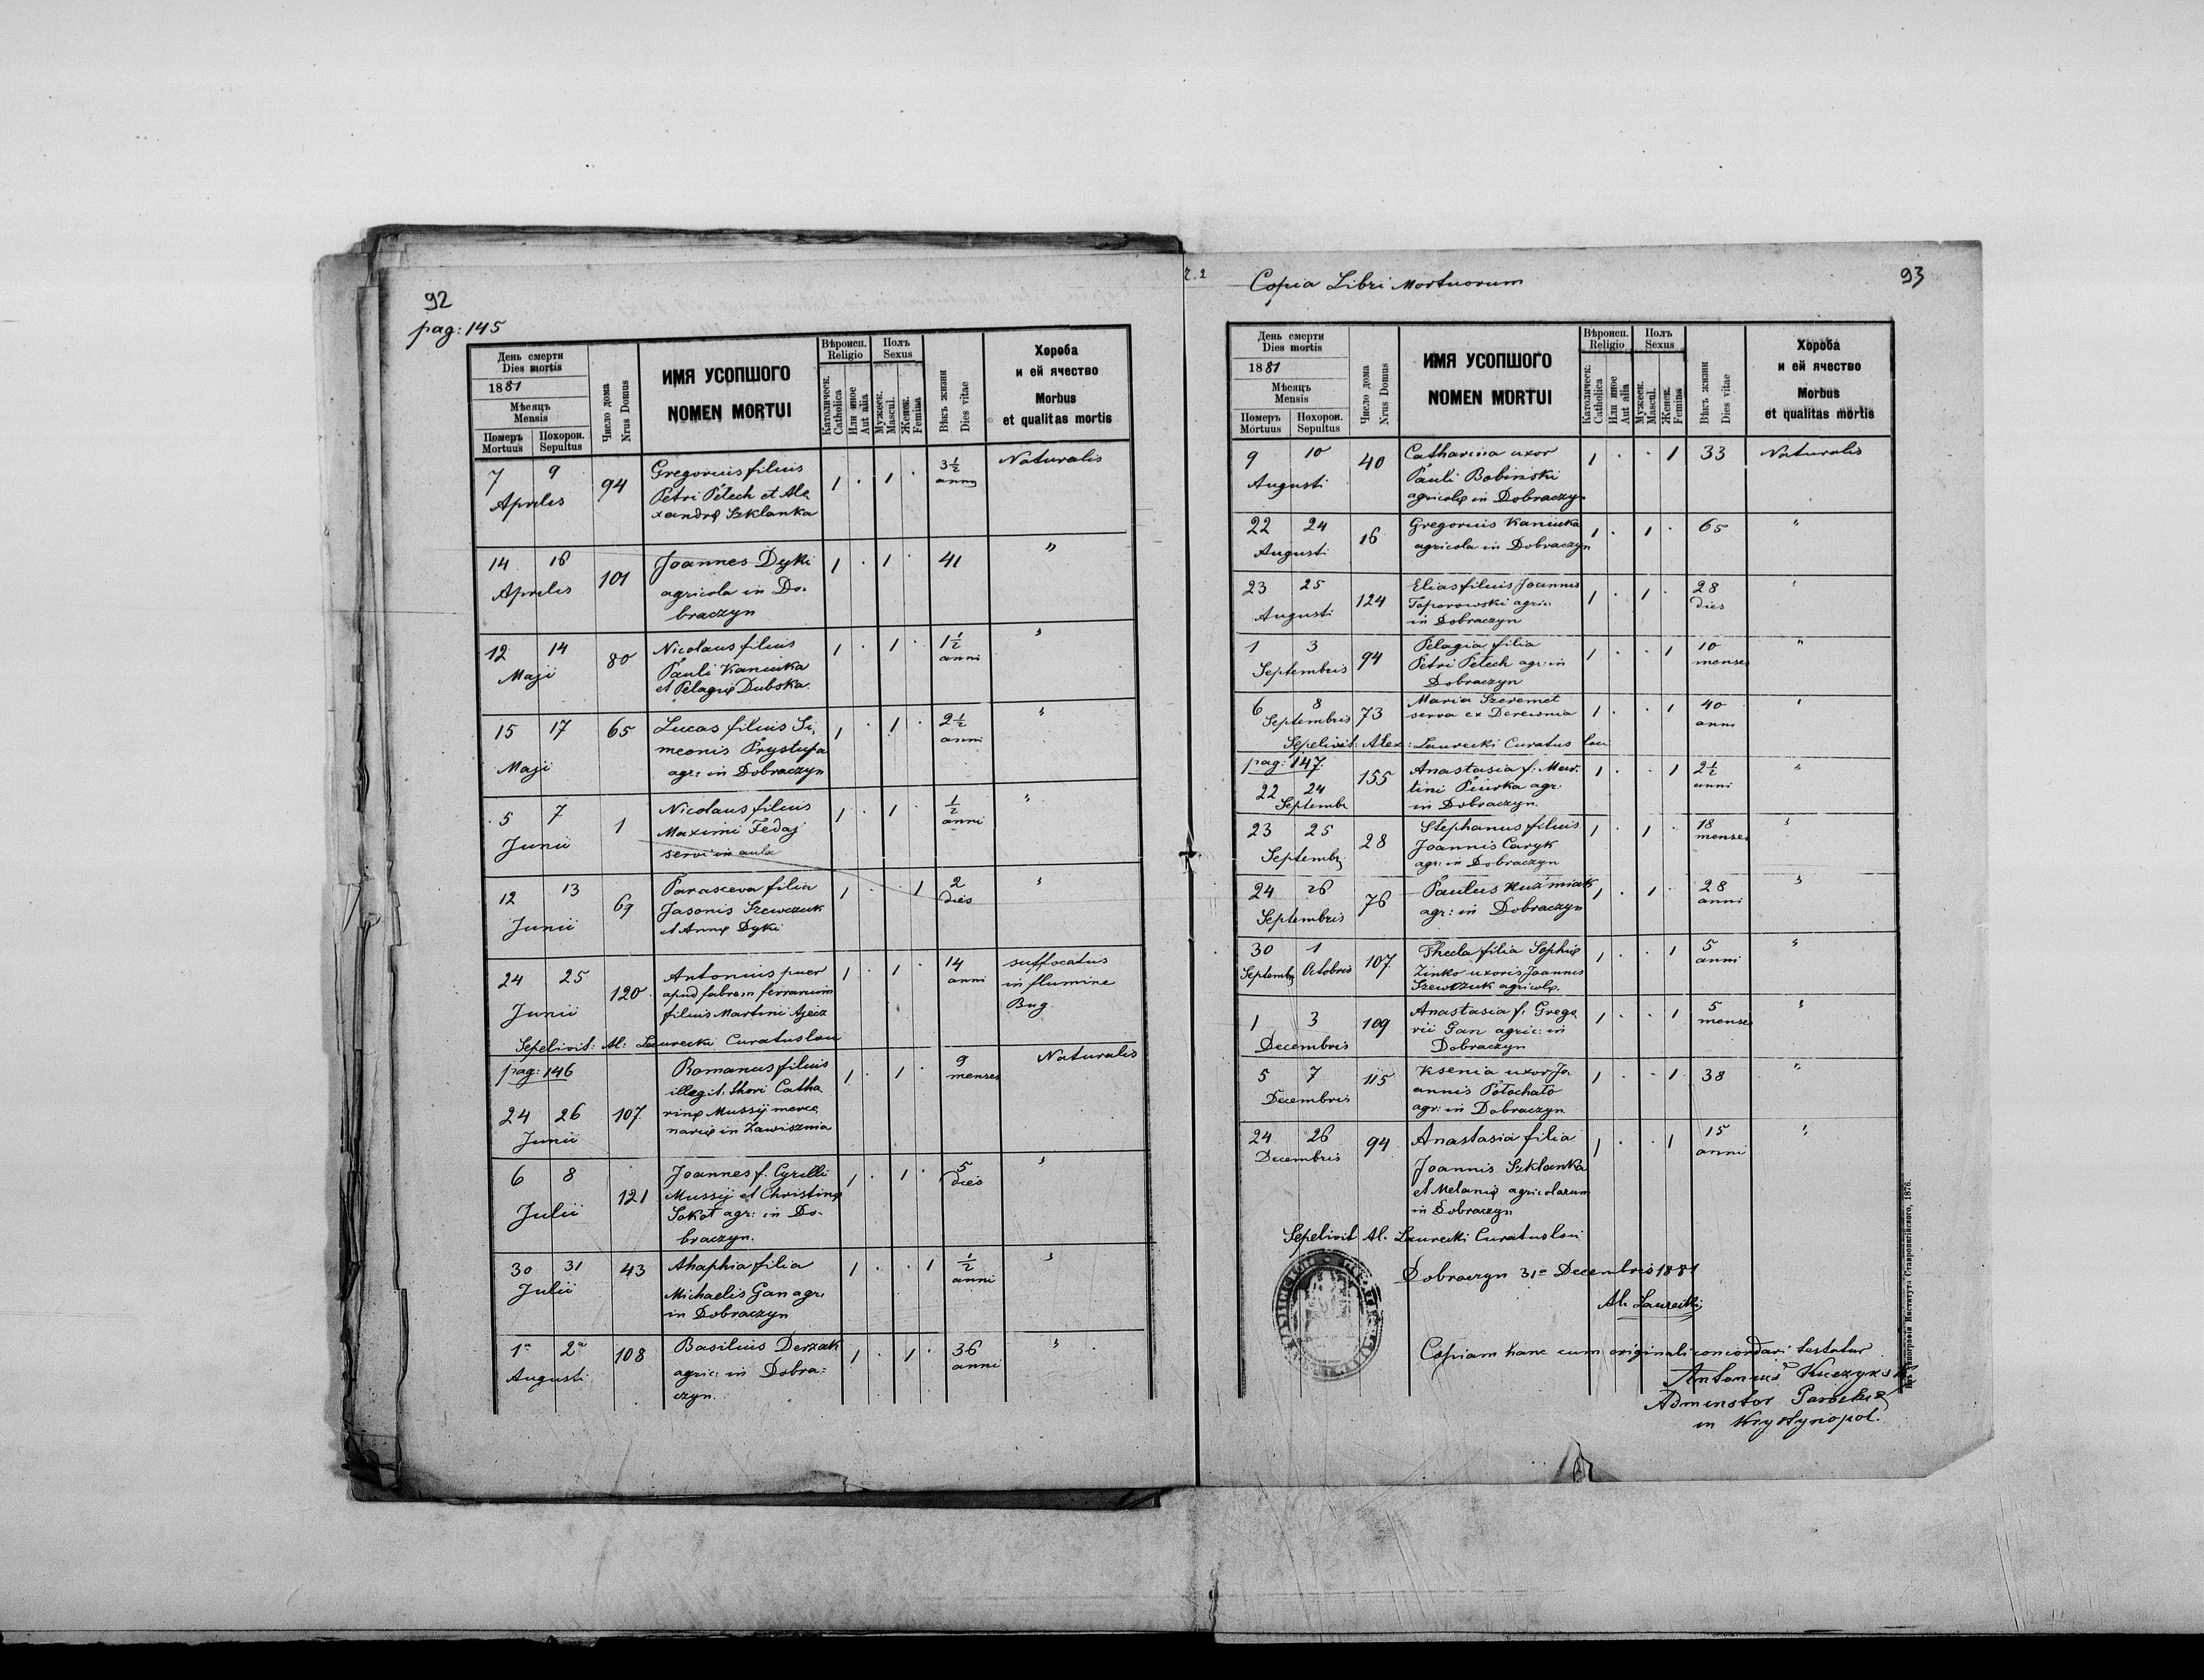 92
pag: 145
День смерти
Dies mortis
1881
Мѣсяцъ
Mensis
Померъ
Mortuus
Похорон.
Sepultus
Число дома
Nrus Domus
ИМЯ УСОПШОГО
NOMEN MORTUI
Вѣроисп.
Religio
Католическ.
Catholica
Или иное
Aut alia
Полъ
Sexus
Мужеск.
Mascul.
Женск.
Femina
Вѣкъ жизни
Dies vitae
Хороба
и ей ячество
Morbus
et qualitas mortis
7 9 94 Gregorius filius 1 . 1 . 3½ Naturalis
Aprilis Petri Petech et Ale anni
xandrę Szklanka
14 16 101 Joannes Dyki 1 . 1 . 41 "
Aprilis agricola in Do-
braczyn
12 14 80 Nicolaus filius 1 . 1 . 1½ "
Maji Pauli Kaniuka anni
et Pelagię Dubska.
15 17 65 Lucas filius Si, 1 . 1 . 2½ "
Maji meonis Prystupa anni
agr: in Dobraczyn
5 7 1 Nicolaus filius 1 . 1 . ½ "
Junii Maximi Fedaj anni
servi in aula
12 13 69 Parasceva filia 1 . . 1 2 "
Junii Jasonis Szewczuk dies
et Annę Dyki
24 25 120 Antonius puer 1 . 1 . 14 suffocatus
Junii apud fabrem ferrarium anni in flumine
filius Martini Bug.
Sepelivit: Al: Laurecki Curatus loci
pag: 146 Romanus filius 1 . 1 . 9 Naturalis
illegit: thori Catha menses
24 26 107 rinę Mussij merce
Junii narię in Zawisznia
6 8 121 Joannes f. Cyrilli 1 . 1 . 5 "
Julii Mussij et Christinę dies
Sokoł agr: in Do-
braczyn.
30 31 43 Ahaphia filia 1 . . 1 ½ "
Julii Michaelis Gan agr: anni
in Dobraczyn
1a 2a 108 Basilius Derzak 1 . 1 . 36 "
Augusti agric: in Dobra= anni
czyn.
Copia Libri Mortuorum
93
День смерти
Dies mortis
1881
Мѣсяцъ
Mensis
Померъ
Mortuus
Похорон.
Sepultus
Число дома
Nrus Domus
ИМЯ УСОПШОГО
NOMEN MORTUI
Вѣроисп.
Religio
Католическ.
Catholica
Или иное
Aut alia
Полъ
Sexus
Мужеск.
Mascul.
Женск.
Femina
Вѣкъ жизни
Dies vitae
Хороба
и ей ячество
Morbus
et qualitas mortis
9 10 40 Catharina uxor 1 . . 1 33 Naturalis
Augusti Pauli Bobinski
agricolę in Dobraczyn
22 24 16 Gregorius Kaniuka 1 . 1 . 65 "
Augusti agricola in Dobraczyn
23 25 124 Elias filius Joannis 1 . 1 . 28 "
Augusti Toporowski agric: dies
in Dobraczyn
1 3 94 Pelagia filia 1 . . 1 10 "
Septembris Petri Petech agr: in menses
Dobraczyn
6 8 73 Maria Szeremet 1 . . 1 40 "
Septembris serva ex Derewnia anni
Sepelivit: Alex: Laurecki Curatus loci
pag: 147. 155 Anastasia f: Mar- 1 . . 1 2½ "
22 24 tini Piurka agr: anni
Septembr in Dobraczyn.
23 25 28 Stephanus filius 1 . 1 . 18 "
Septemb. Joannis Caryk menses
agr: in Dobraczyn
24 26 76 Paulus Kuźmiak 1 . 1 . 28 "
Septembris agr: in Dobraczyn anni
30 1 107 Thecla filia Sophię 1 . . 1 5 "
Septemb. Octobris Zinko uxoris Joannis anni
Szewczuk agricolę.
1 3 109 Anastasia f. Grego 1 . . 1 5 "
Decembris rii Gan agric: in menses
Dobraczyn
5 7 115 Ksenia uxor Jo- 1 . . 1 38 "
Decembris annis Potochato
agr: in Dobraczyn
24 26 94 Anastasia filia 1 . . 1 15 "
Decembris Joannis Szklanka anni
et Melanię agricolarum
in Dobraczyn
Sepelivit Al. Laurecki Curatus loci
Dobraczyn 31a Decembris 1881
Al. Laurecki
Copiam hanc cum originali concordari testatur
Antonius
in Krystynopol.
Института Ставропигійского, 1876.